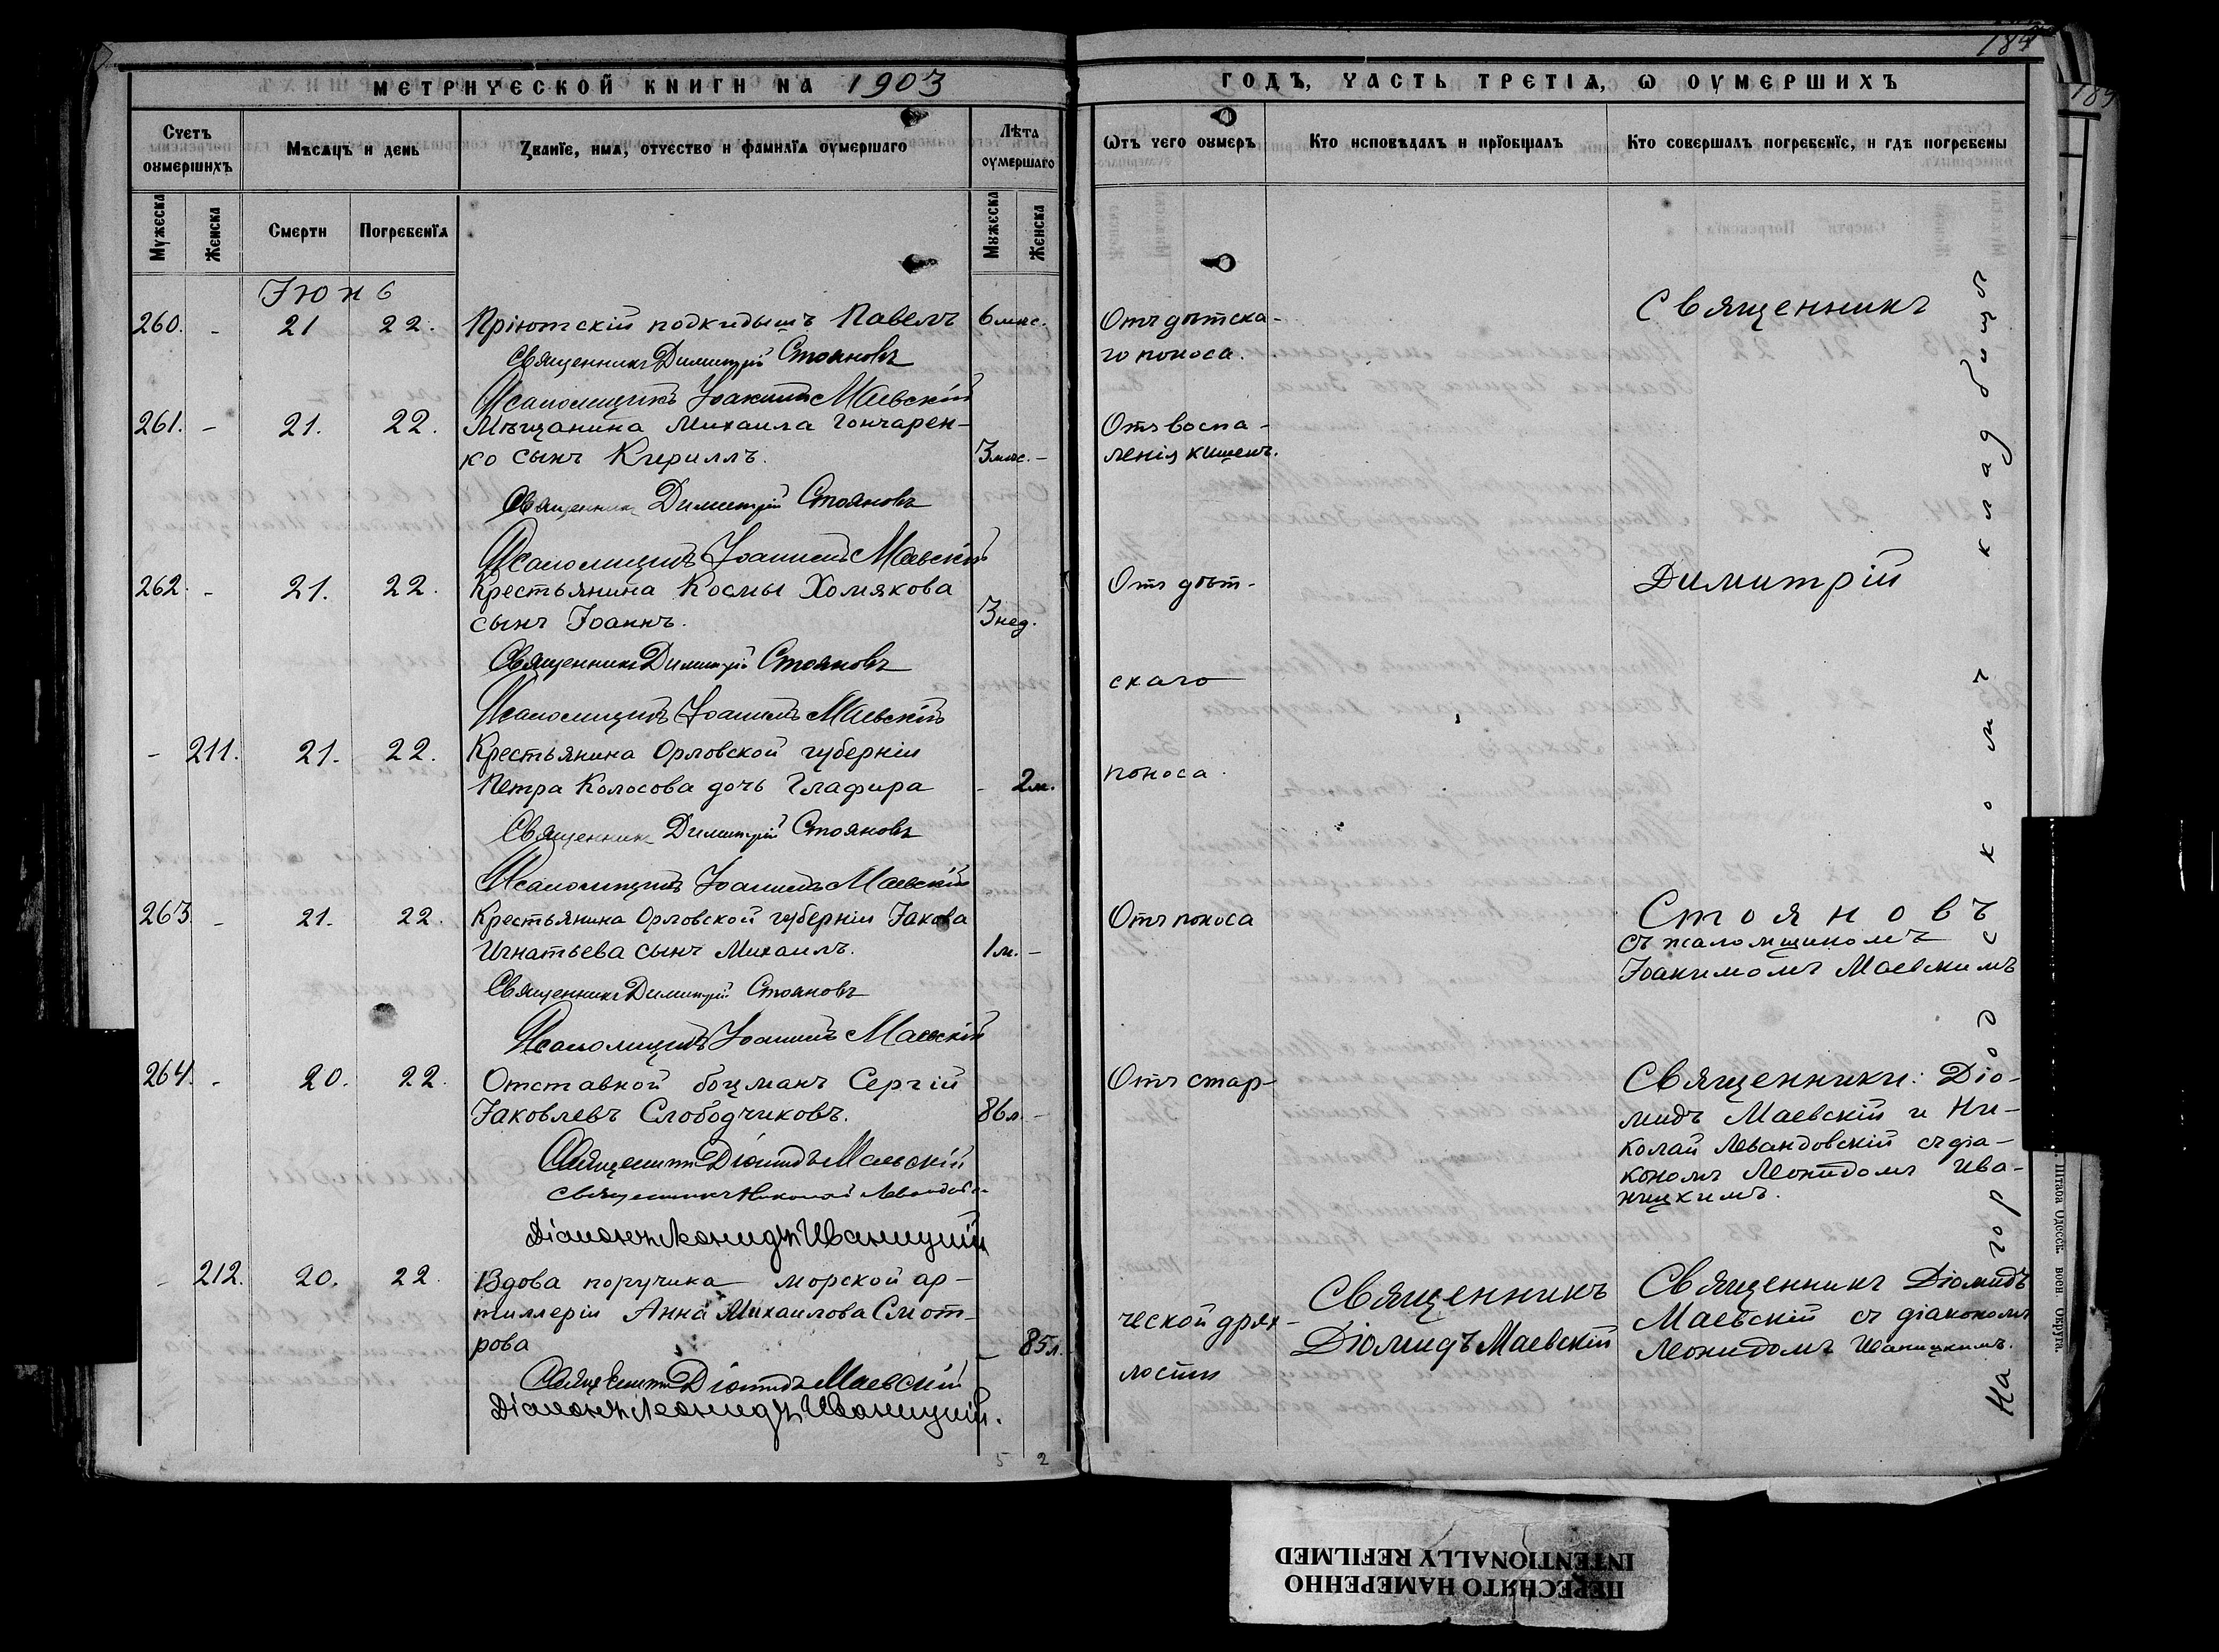 184
189
МЕТРИЧЕСКОЙ КНИГИ НА 1903
ГОДЪ, ЧАСТЬ ТРЕТІѦ, Ѡ ОУМЕРШИХЪ
Счетъ оумершихъ
Мѣсяцъ и день
Званіе, имѧ, отчество и фамиліѧ оумершаго
Лѣта оумершаго
Мужеска
Женска
Смерти
Погребеніѧ
Мужеска
Женска
Ѿтъ чего оумеръ
Кто исповѣдалъ и пріобщалъ
Кто совершалъ погребеніе, и гдѣ погребены
Іюнь
260. - 21 22. Пріютскій подкидышъ Павелъ 6 мѣс.
Священникъ Димитрій Стояновъ
Псаломщикъ Іоакимъ Маевскій
261. - 21. 22. Мѣщанина Михаила Гончарен-
ко сынъ Кириллъ. 3 мѣс. -
Священникъ Димитрій Стояновъ
Псаломщикъ Іоакимъ Маевскій
262. - 21. 22. Крестьянина Космы Хомякова
сынъ Іоаннъ. 3 нед.
Священникъ Димитрій Стояновъ
Псаломщикъ Іоакимъ Маевскій
- 211. 21. 22. Крестьянина Орловской губерніи
Петра Колосова дочь Глафира - 2 м.
Священникъ Димитрій Стояновъ
Псаломщикъ Іоакимъ Маевскій
263 - 21. 22. Крестьянина Орловской губерніи Іакова
Игнатьева сынъ Михаилъ. 1 м. -
Священникъ Димитрій Стояновъ
Псаломщикъ Іоакимъ Маевскій
264. - 20. 22. Отставной боцманъ Сергій
Іаковлевъ Слободчиковъ. 86 л. -
Священникъ Діомидъ Маевскій
Священникъ Николай Левандовскій
Діаконъ Леонидъ Иваницкій
- 212. 20. 22 Вдова поручика морской ар-
тиллеріи Анна Михаилова Смот-
рова - 85 л.
Священникъ Діомидъ Маевскій
Діаконъ Леонидъ Иваницкій.
5 2
Отъ дѣтска-
го поноса.
Отъ воспа-
ленія кишекъ.
Отъ дѣт-
скаго
поноса.
Отъ поноса
Отъ стар-
ческой дрях-
лости
Священникъ
Діомидъ Маевскій
Священникъ
Димитрій
Стояновъ
съ псаломщикомъ
Іоакимомъ Маевскимъ
Священники: Діо-
мидъ Маевскій и Ни-
колай Левандовскій съ діа-
кономъ Леонидомъ Ива-
ницкимъ.
Священникъ Діомидъ
Маевскій съ діакономъ
Леонидомъ Иваницкимъ.
На городскомъ кладбищѣ
Штаба Одесск. воен. Округа.
ПЕРЕСНЯТО НАМЕРЕННО
INTENTIONALLY REFILMED